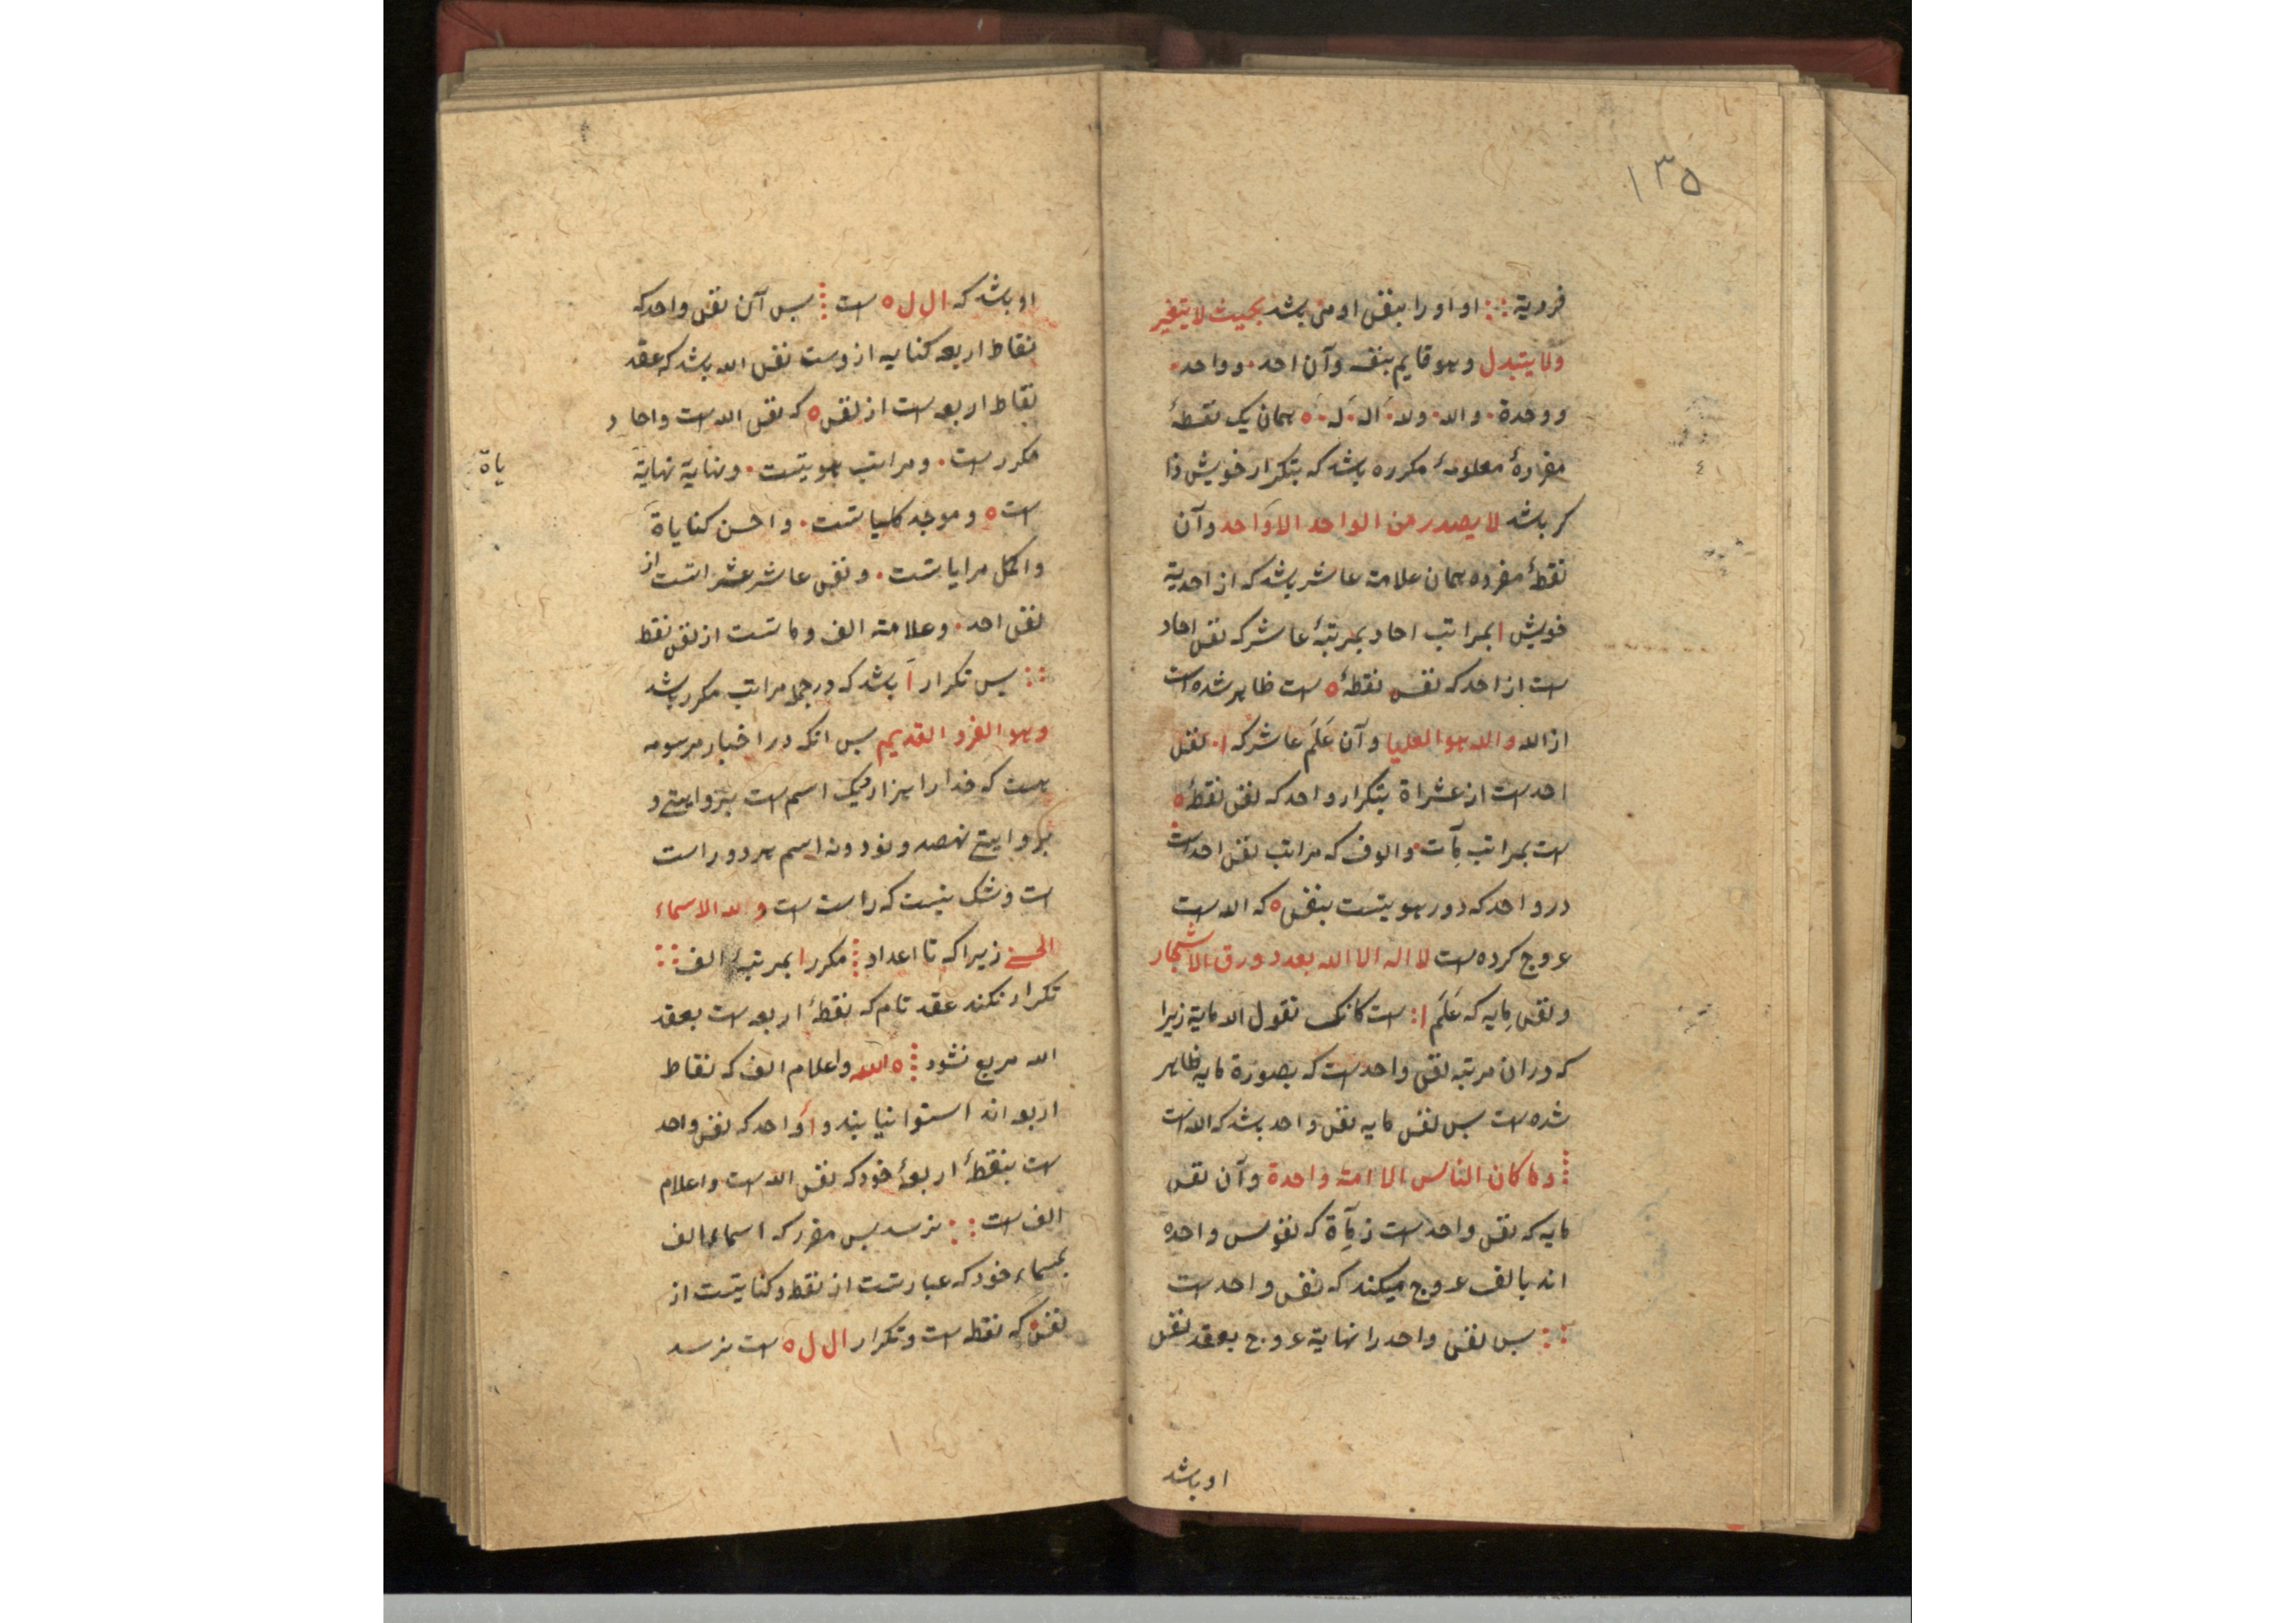 ١٣٥
فردیة :: او او را بنفس او من باشد بحیث لا یتغیر
ولا یتبدل وهو قایم بنفسه وآن احد . وواحد .
ووحدة . والله . وله . الـ . لـ . ه همان یک نقطهٔ
مفردهٔ معلومهٔ مکرره باشد که بتکرار خویش ذا
کر باشد لا یصدر من الواحد الا واحد وآن
نقطهٔ مفرده همان علامت عاشر باشد که از احدیة
خویش ا بمراتب احاد بمرتبهٔ عاشر که نفس احاد
ست از احد که نفس نقطهٔ ه ست ظاهر شده است
از الله والله هو العلیا وآن عَلَم عاشر که ا. نفس
احد ست از عشراة بتکرار واحد که نفس نقطهٔ ه
ست بمراتب مآت . والوف که مراتب نفس احد است
در واحد که دور هویتست بنفس ه که الله ست
عروج کرده ست لا اله الا الله بعدد ورق الاشجار
ونفس مایه که عَلَم ا: ست کانک تقول الا مایة زیرا
که در ان مرتبه نفس واحد ست که بصورة مایه ظاهر
شده ست بس نفس مایه نفس واحد باشد که الله است
⁞ وما کان الناس الا امة واحدة وآن نفس
مایه که نفس واحد ست ز مآة که نفوس واحده
اند بالف عروج میکند که نفس واحد ست
:: بس نفس واحد را نهایة عروج بعقد نفس
او باشد
او باشد که ال ل ه ست ⁞ بس آن نفس واحد که
نقاط اربعه کنایه ازوست نفس الله باشد که عقد
نقاط اربعه ست از نفس ه که نفس الله ست واحاد
مکرر ست . ومراتب هویتست . ونهایة نهایة
یاة
ست ه وموجد کلیاتست . واحسن کنایاة
واکمل مرایاتست . ونفس عاشر عشراتست از
نفس احد . وعلامة الف وماتست از نفس نقط
:: بس تکرار ا باشد که در جمله مراتب مکرر باشد
وهو الفرد القدیم بس انکه در اخبار مرسومه
هست که خدا را هزار و یک اسم ست بروایتی و
بروایتی نهصد و نود و نه اسم هر دو راست
ست و شک نیست که راست ست ولله الاسماء
الحسنی زیرا که تا اعداد ⁞ مکرر ا بمرتبهٔ الف ::
تکرار نکند عقد تام که نقطهٔ اربعه ست بعقد
الله مربع نشود ⁞ ه الله واعلام الف که نقاط
اربعه اند استوا نیابند و ا واحد که نفس واحد
ست بنقطهٔ اربعهٔ خود که نفس الله ست واعلام
الف ست :: نرسد بس مقرر که اسماء الف
بمسماء خود که عبارتست از نقطه و کنایتست از
نفس ه که نقطه ست و تکرار ال ل ه ست نرسد